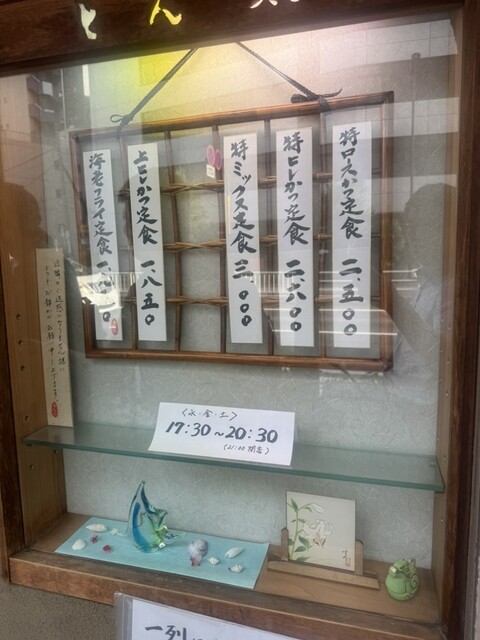 とん
特ロースかつ定食 二、五〇〇
特ヒレかつ定食 二、六〇〇
特ミックス定食 三、〇〇〇
上ヒレかつ定食 一、八五〇
海老フライ定食
〈水・金・土〉
17:30~20:30
(21:00 閉店)
一列